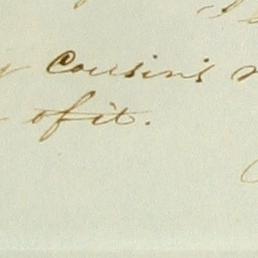 cousin's
of it.